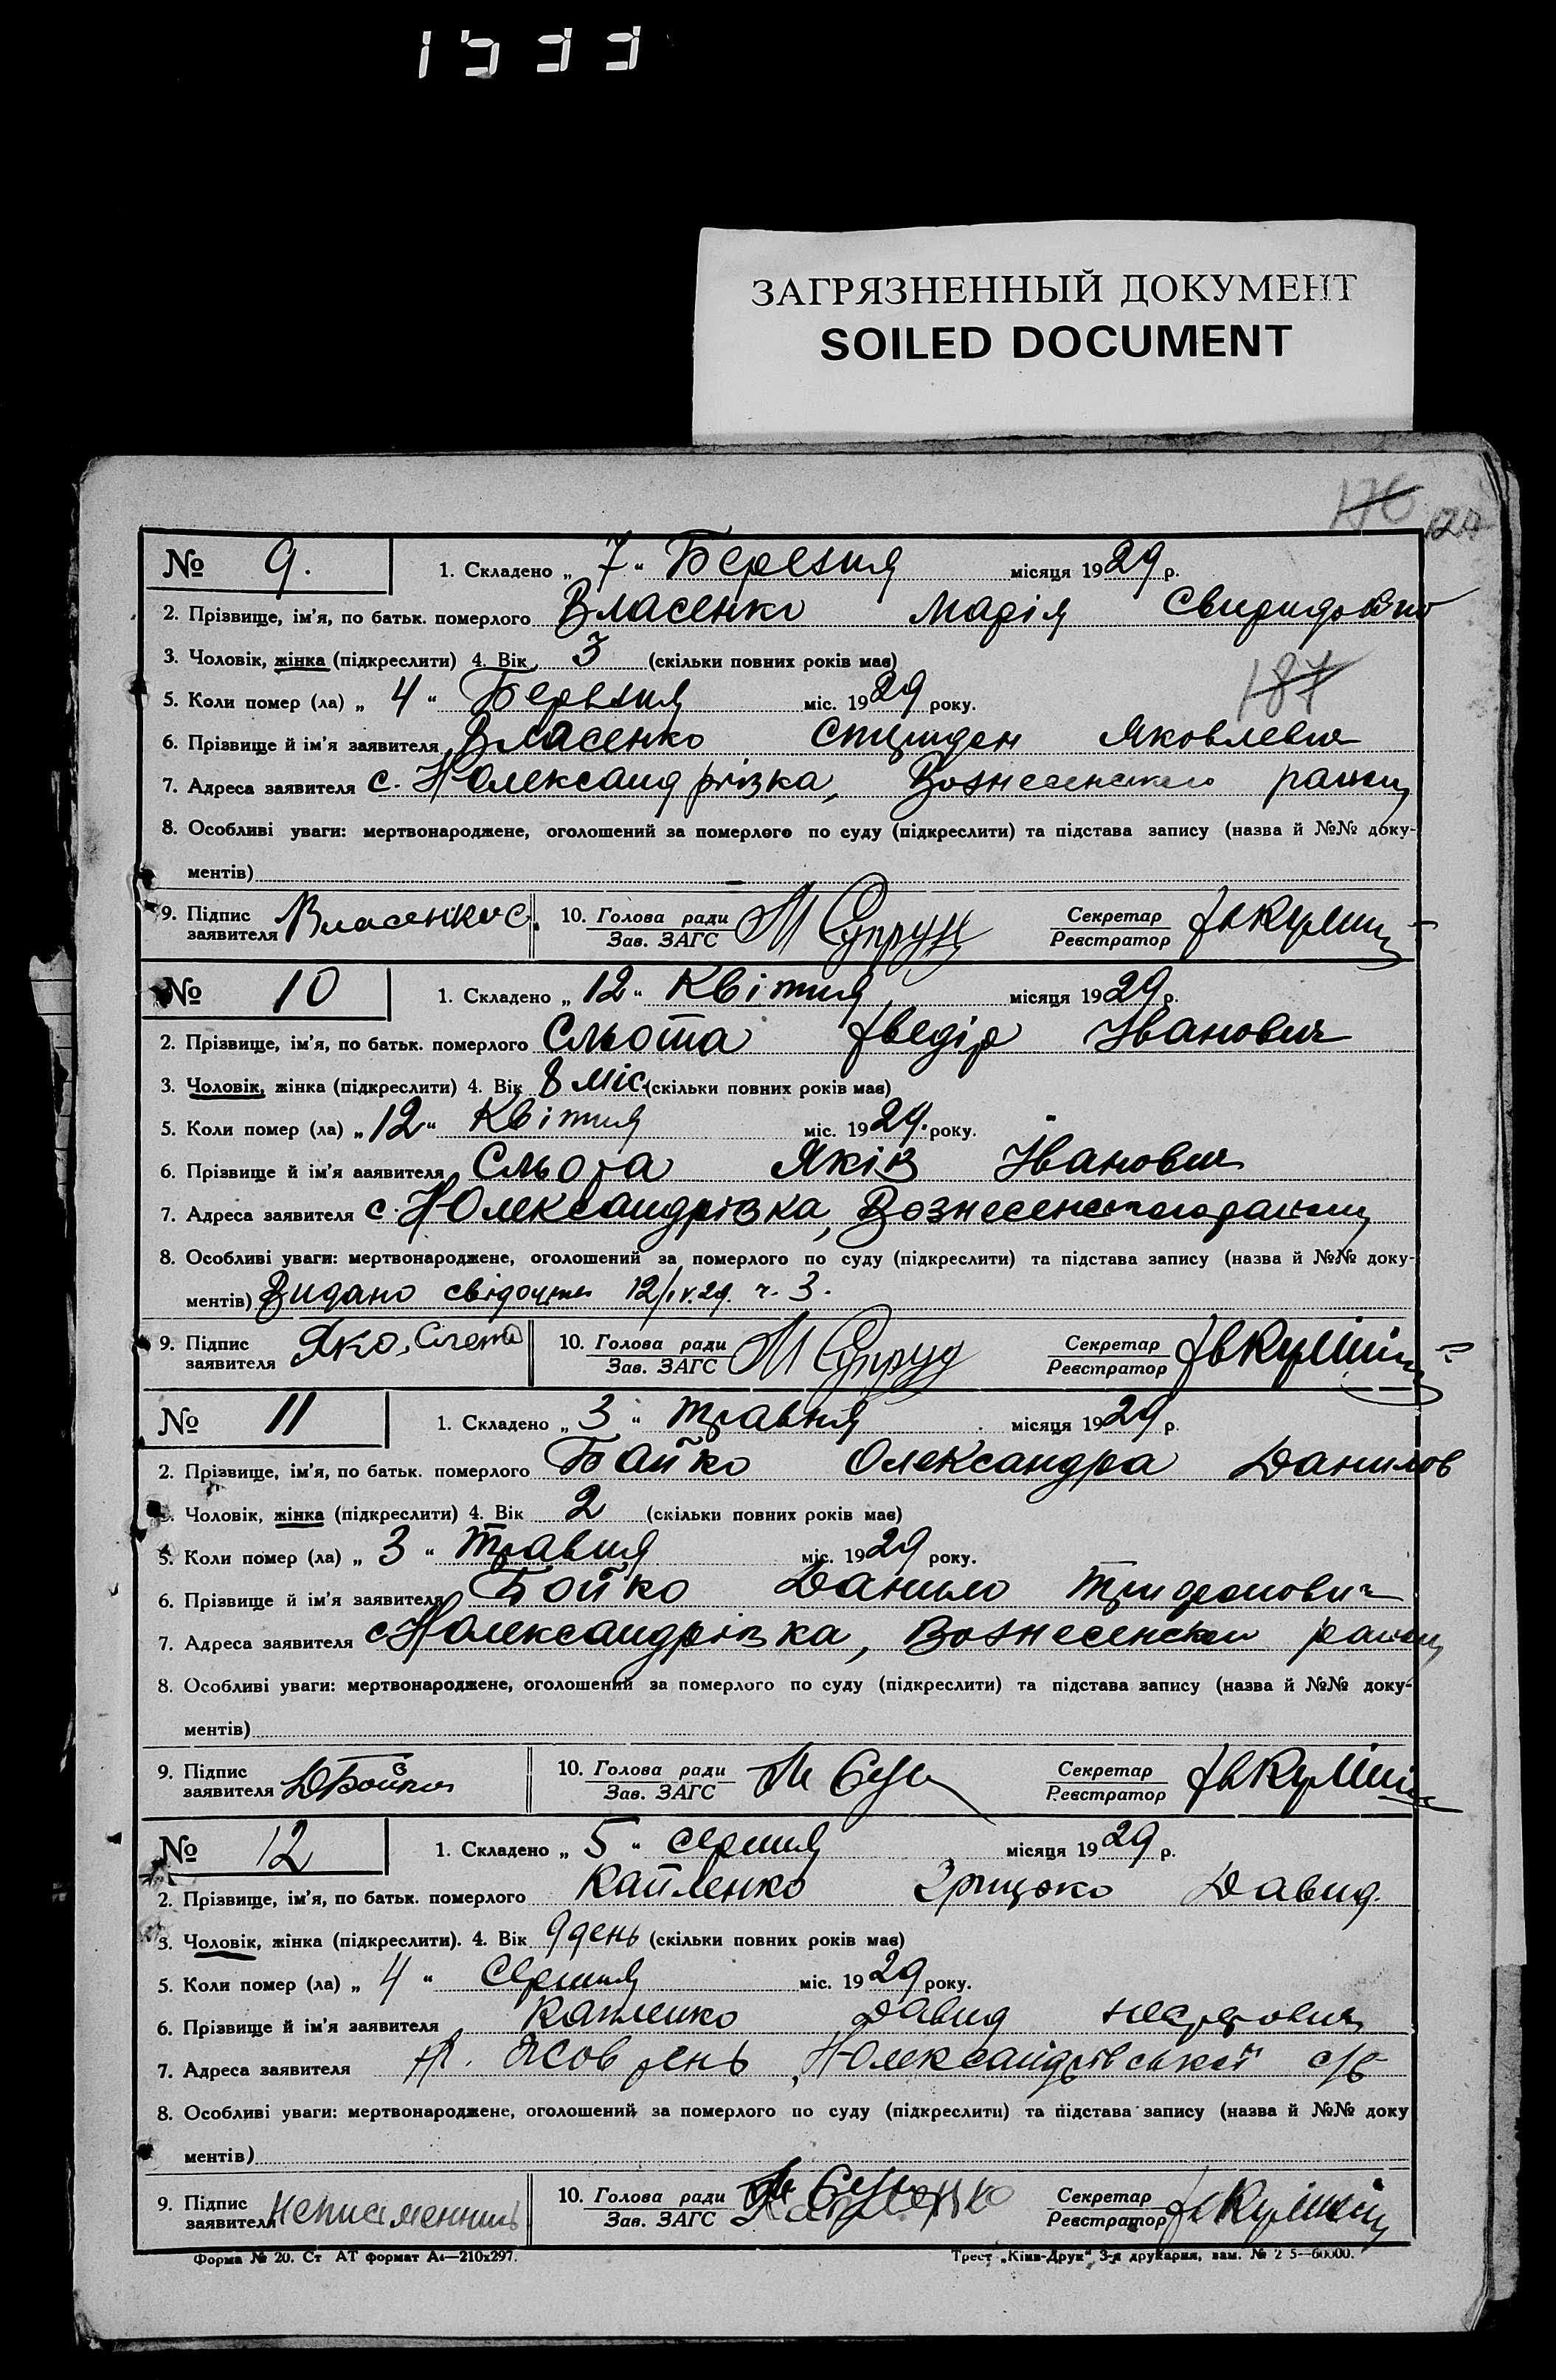 1533
ЗАГРЯЗНЕННЫЙ ДОКУМЕНТ
SOILED DOCUMENT
176
№ 9. 1. Складено „ 7 “ Березня місяця 1929 р.
2. Прізвище, ім'я, по батьк. померлого Власенко Марія Свиридовно
3. Чоловік, жінка (підкреслити) 4. Вік 3 (скільки повних років має)
187
5. Коли помер (ла) „ 4 “ Березня міс. 1929 року.
6. Прізвище й ім'я заявителя Власенко Яковлевич
7. Адреса заявителя с. НОлександрівка, Вознесенського району
8. Особливі уваги: мертвонароджене, оголошений за померлого по суду (підкреслити) та підстава запису (назва й №№ доку-
ментів)
9. Підпис заявителя Власенко С. 10. Голова ради Зав. ЗАГС М Супрун Секретар Реєстратор
№ 10 1. Складено „ 12 “ Квітня місяця 1929 р.
2. Прізвище, ім'я, по батьк. померлого Сльота Хведір Іванович
3. Чоловік, жінка (підкреслити) 4. Вік 8 міс. (скільки повних років має)
5. Коли помер (ла) „ 12 “ Квітня міс. 1929. року.
6. Прізвище й ім'я заявителя Сльота Яків Іванович
7. Адреса заявителя с. НОлександрівка, Вознесенського району
8. Особливі уваги: мертвонароджене, оголошений за померлого по суду (підкреслити) та підстава запису (назва й №№ доку-
ментів) Видано свідоцтво 12/IV.29. ч. 3.
9. Підпис заявителя 10. Голова ради Зав. ЗАГС М Супрун Секретар Реєстратор
№ 11 1. Складено „ 3 “ Травня місяця 1929 р.
2. Прізвище, ім'я, по батьк. померлого Бойко Олександра Данилов
3. Чоловік, жінка (підкреслити) 4. Вік 2 (скільки повних років має)
5. Коли помер (ла) „ 3 “ Травня міс. 1929 року.
6. Прізвище й ім'я заявителя Бойко Данило
7. Адреса заявителя с. НОлександрівка, Вознесенського району
8. Особливі уваги: мертвонароджене, оголошений за померлого по суду (підкреслити) та підстава запису (назва й №№ доку-
ментів)
9. Підпис заявителя Д Бойко 10. Голова ради Зав. ЗАГС Секретар Реєстратор
№ 12 1. Складено „ 5 “ серпня місяця 1929 р.
2. Прізвище, ім'я, по батьк. померлого Капленко Грицько Давид.
3. Чоловік, жінка (підкреслити). 4. Вік 9 день (скільки повних років має)
5. Коли помер (ла) „ 4 “ Серпня міс. 1929 року.
6. Прізвище й ім'я заявителя Капленко Давид
7. Адреса заявителя НОлександрівської с/р
8. Особливі уваги: мертвонароджене, оголошений за померлого по суду (підкреслити) та підстава запису (назва й №№ доку
ментів)
9. Підпис заявителя 10. Голова ради Зав. ЗАГС Секретар Реєстратор
Форма № 20. Ст АТ формат А4—210x297. Трест „Київ-Друк“ 3-я друкарня, зам. № 2 5—60000.